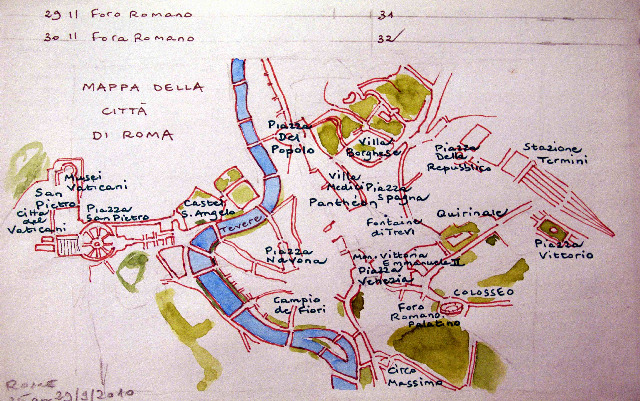 29 11 Foro Romano 31
30 11 Fora Romano 32
MAPPA DELLA
CITTÀ
DI ROMA
Piazza
Del
Popolo
Villa
Borghese
Piazza
Della
Repubblica
Stazione
Termini
Musei
Vaticani
San
Pietro
Citta
del
Vaticani
Piazza
San Pietro
Castel
S. Angelo
Tevere
Villa
Medici
Piazza
Spagna
Pantheon
Fontaine
di Trevi
Quirinale
Piazza
Vittorio
Piazza
Navona
Mon. Vittoria
Emmanuele II
Piazza
Venezia
Campio
de Fiori
COLOSSEO
Foro
Romano
Palatino
Circo
Massimo
ROME
29/9/2010